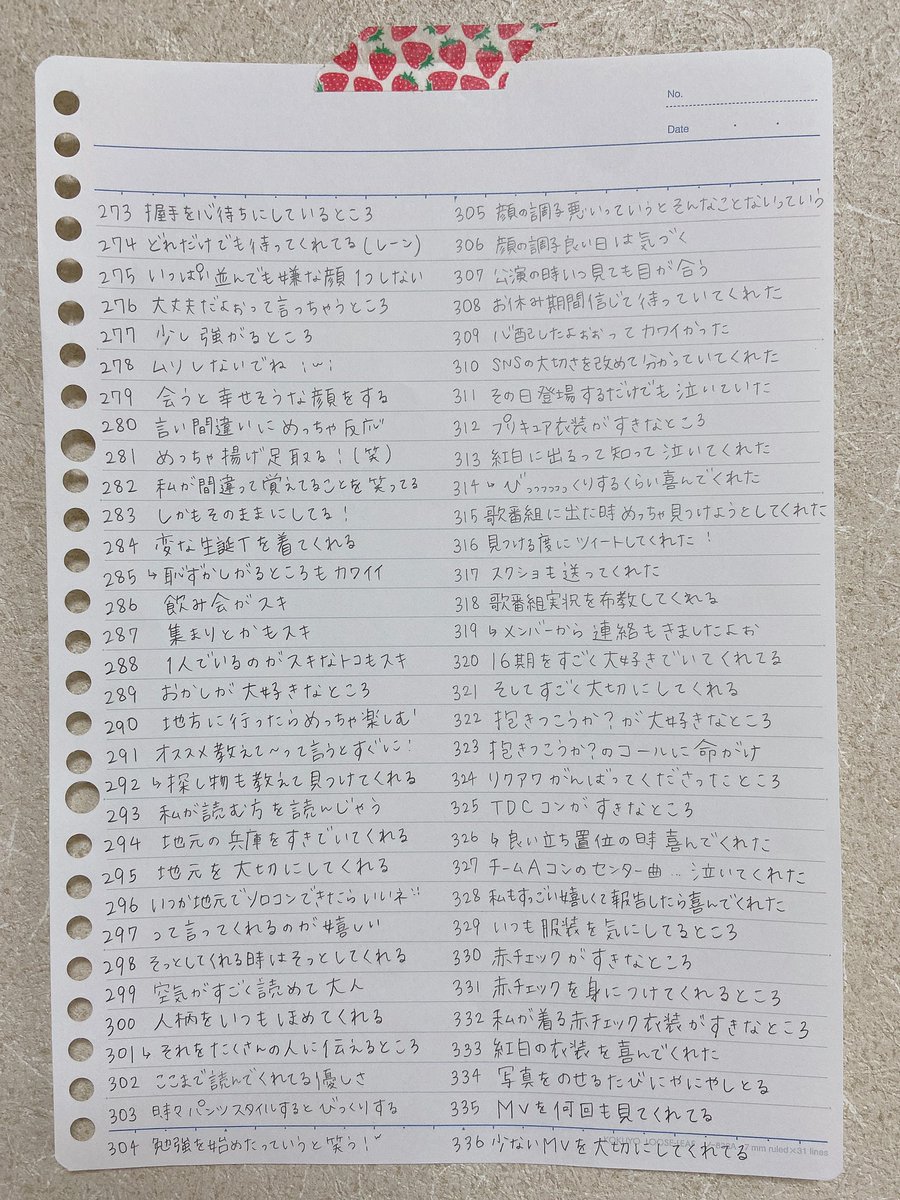 No.
Date
273 握手を心待ちにしているところ
274 どれだけでも待ってくれてる(レーン)
275 いっぱい並んでも嫌な顔1つしない
276 大丈夫だよぉって言っちゃうところ
277 少し強がるところ
278 ムリしないでね
279 会うと幸せそうな顔をする
280 言い間違いにめっちゃ反応
281 めっちゃ揚げ足取る!(笑)
282 私が間違って覚えてることを笑ってる
283 しかもそのままにしてる!
284 変な生誕Tを着てくれる
285 ↳恥ずかしがるところもカワイイ
286 飲み会がスキ
287 集まりとかもスキ
288 1人でいるのがスキなトコもスキ
289 おかしが大好きなところ
290 地方に行ったらめっちゃ楽しむ
291 オススメ教えて〜って言うとすぐに!
292 ↳探し物も教えて見つけてくれる
293 私が読む方を読んじゃう
294 地元の兵庫をすきでいてくれる
295 地元を大切にしてくれる
296 いつか地元でソロコンできたらいいネ
297 って言ってくれるのが嬉しい
298 そっとしてくれる時はそっとしてくれる
299 空気がすごく読めて大人
300 人柄をいつもほめてくれる
301 ↳それをたくさんの人に伝えるところ
302 ここまで読んでくれてる優しさ
303 時々パンツスタイルするとびっくりする
304 勉強を始めたっていうと笑う!
305 顔の調子悪いっていうとそんなことないっていう
306 顔の調子良い日は気づく
307 公演の時いつ見ても目が合う
308 お休み期間信じて待っていてくれた
309 心配したよぉぉってカワイかった
310 SNSの大切さを改めて分かっていてくれた
311 その日登場するだけでも泣いていた
312 プリキュア衣装がすきなところ
313 紅白に出るって知って泣いてくれた
314 ↳びっっっっっっくりするくらい喜んでくれた
315 歌番組に出た時めっちゃ見つけようとしてくれた
316 見つける度にツイートしてくれた!
317 スクショも送ってくれた
318 歌番組実況を布教してくれる
319 ↳メンバーから連絡もきましたよぉ
320 16期をすごく大好きでいてくれてる
321 そしてすごく大切にしてくれる
322 抱きつこうか?が大好きなところ
323 抱きつこうか?のコールに命がけ
324 リクアワがんばってくださったところ
325 TDCコンがすきなところ
326 ↳良い立ち置位の時喜んでくれた
327 チームAコンのセンター曲…泣いてくれた
328 私もすっごい嬉しくて報告したら喜んでくれた
329 いつも服装を気にしてるところ
330 赤チェックがすきなところ
331 赤チェックを身につけてくれるところ
332 私が着る赤チェック衣装がすきなところ
333 紅白の衣装を喜んでくれた
334 写真をのせるたびにやにやしとる
335 MVを何回も見てくれてる
336 少ないMVを大切にしてくれてる
KOKUYO LOOSE-LEAF 7 mm ruled×31 lines